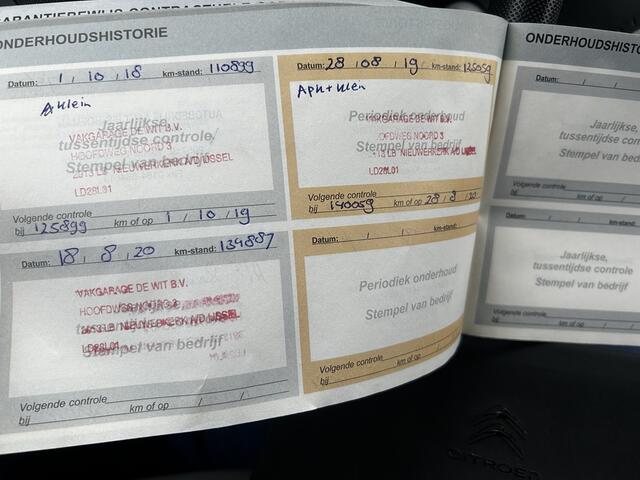 ONDERHOUDSHISTORIE
Datum: 1 , 10 , 18 km-stand: 110899
A klein
Jaarlijkse,
tussentijdse controle
Stempel van bedrijf
VAKGARAGE DE WIT B.V.
HOOFDWEG NOORD 3
NIEUWERKERK A/D IJSSEL
LD28L01
Volgende controle
bij 125899 km of op 1 , 10 , 19
Datum: 28 , 08 , 19 km-stand: 125059
APK + klein
Periodiek onderhoud
Stempel van bedrijf
VAKGARAGE DE WIT B.V.
HOOFDWEG NOORD 3
LB NIEUWERKERK A/D IJSSEL
LD28L01
Volgende controle
bij 140059 km of op 28 , 8 , 20
Datum: 18 , 8 , 20 km-stand: 134887
VAKGARAGE DE WIT B.V.
HOOFDWEG NOORD 3
LB NIEUWERKERK A/D IJSSEL
LD28L01
Stempel van bedrijf
Volgende controle
bij km of op / /
Datum: / / km-stand:
Periodiek onderhoud
Stempel van bedrijf
Volgende controle
bij km of op / /
ONDERHOUDSHISTO
Datum: /
Jaarlijkse,
tussentijdse controle
Stempel van bedrijf
Volgende controle
bij km of op
Datum: / /
Jaarlijkse,
tussentijdse controle
Stempel van bedrijf
Volgende controle
bij km of op
CITROËN